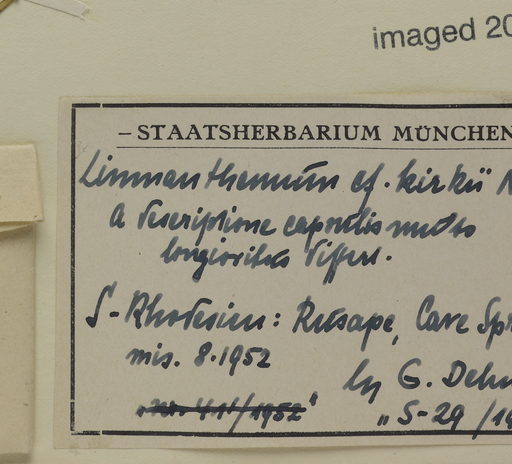 imaged 20
– STAATSHERBARIUM MÜNCHEN
Limnanthemum cf. kirkii N
a descriptione capsulis multo
longioribus differt.
S-Rhodesien: Rusape, Cave Spr
mis. 8.1952
lg G. Dehn
"S-29/19